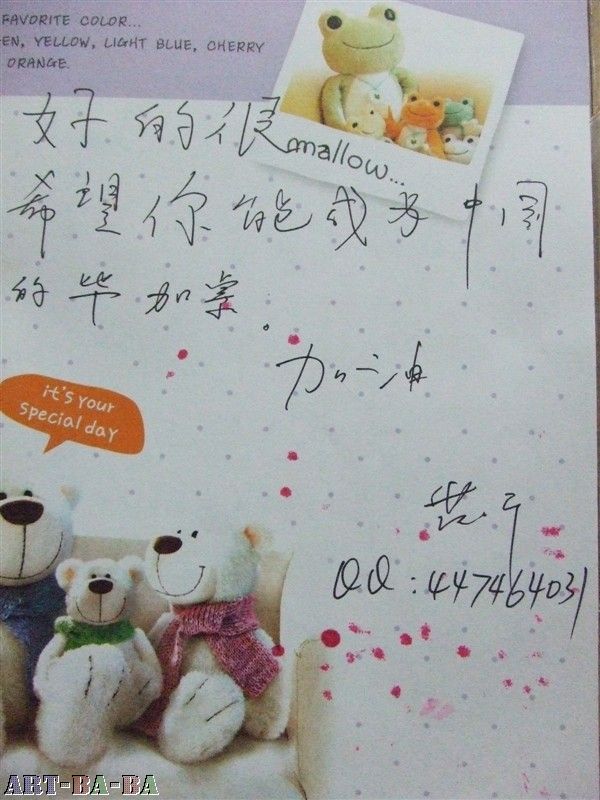 FAVORITE COLOR...
EN, YELLOW, LIGHT BLUE, CHERRY
ORANGE.
mallow...
好的很
希望你能成为中国
的毕加索.
加油
it's your
special day
QQ:447464031
ART-BA-BA